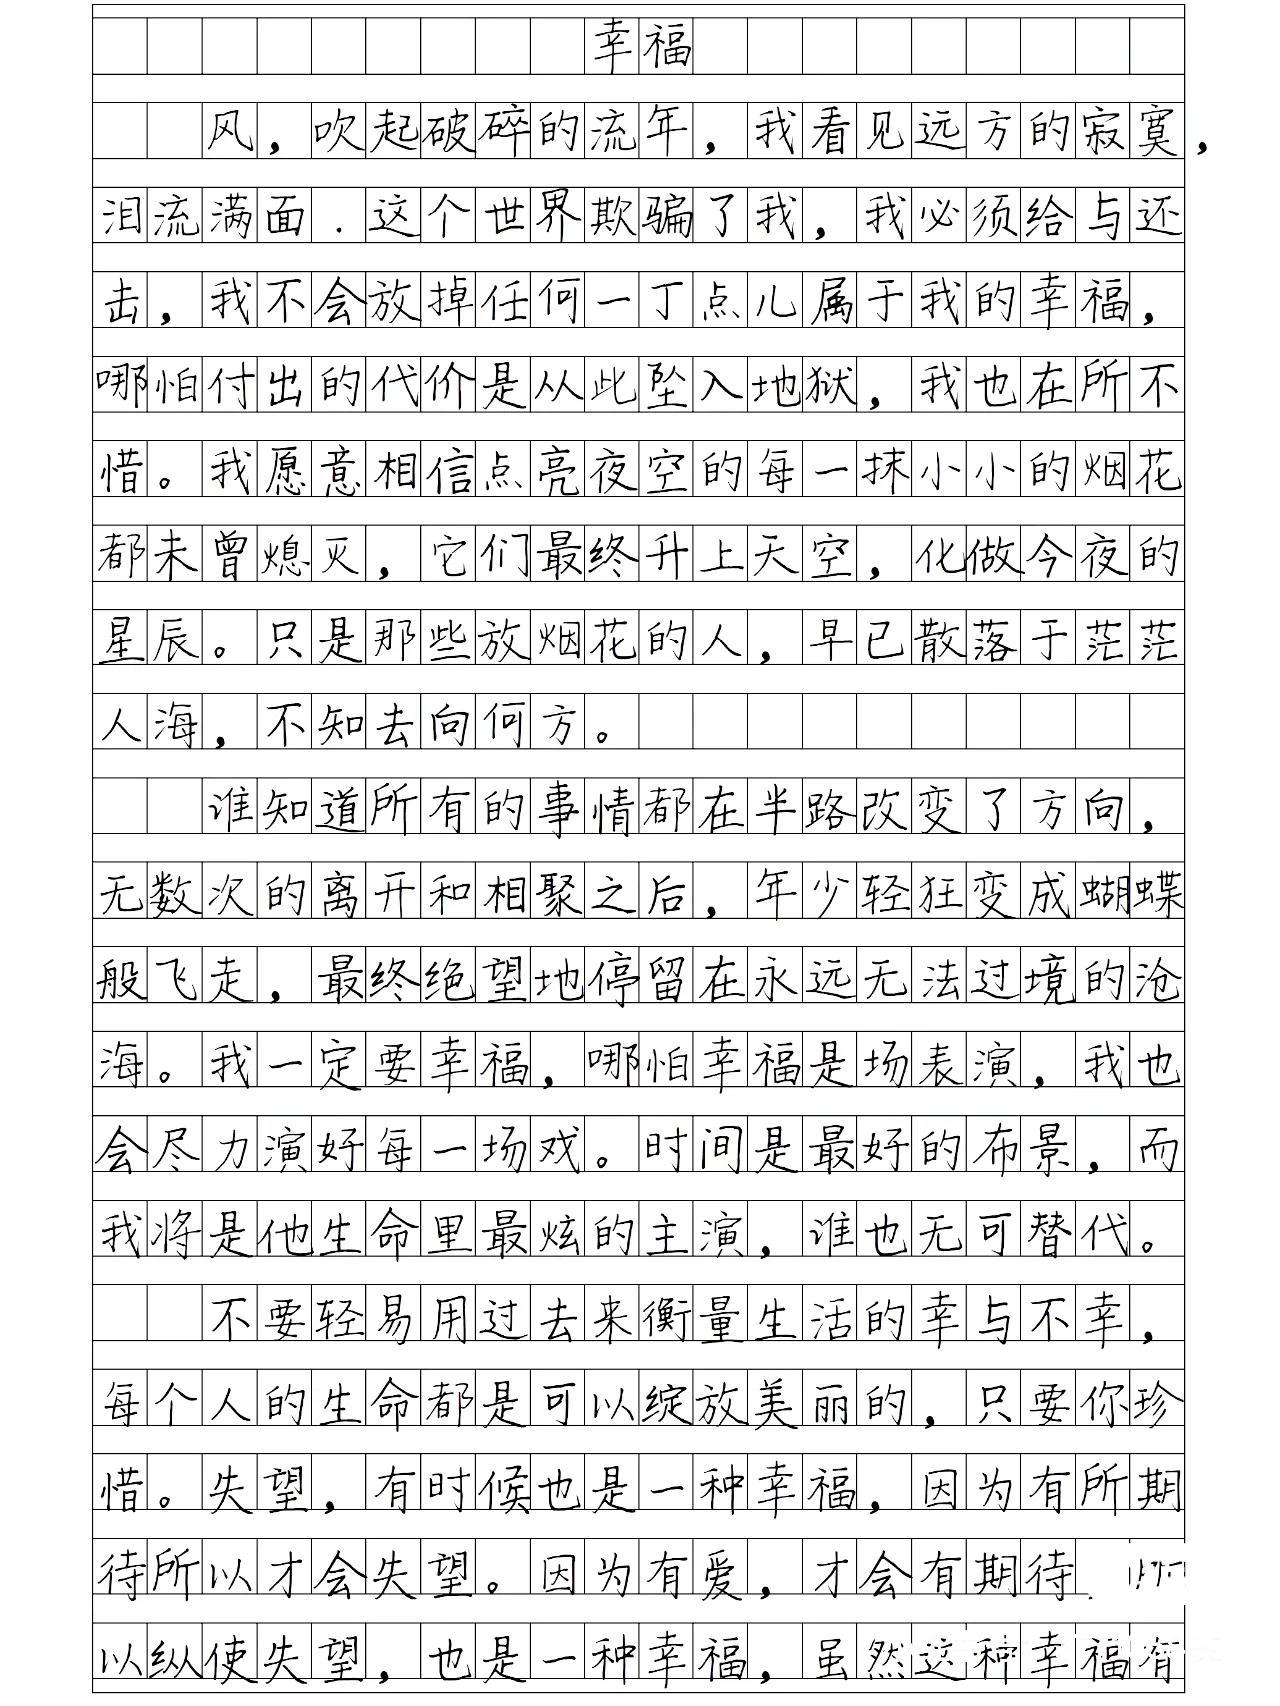 幸福
风，吹起破碎的流年，我看见远方的寂寞，
泪流满面．这个世界欺骗了我，我必须给与还
击，我不会放掉任何一丁点儿属于我的幸福，
哪怕付出的代价是从此坠入地狱，我也在所不
惜。我愿意相信点亮夜空的每一抹小小的烟花
都未曾熄灭，它们最终升上天空，化做今夜的
星辰。只是那些放烟花的人，早已散落于茫茫
人海，不知去向何方。
谁知道所有的事情都在半路改变了方向，
无数次的离开和相聚之后，年少轻狂变成蝴蝶
般飞走，最终绝望地停留在永远无法过境的沧
海。我一定要幸福，哪怕幸福是场表演，我也
会尽力演好每一场戏。时间是最好的布景，而
我将是他生命里最炫的主演，谁也无可替代。
不要轻易用过去来衡量生活的幸与不幸，
每个人的生命都是可以绽放美丽的，只要你珍
惜。失望，有时候也是一种幸福，因为有所期
待所以才会失望。因为有爱，才会有期待
以纵使失望，也是一种幸福，虽然这种幸福有